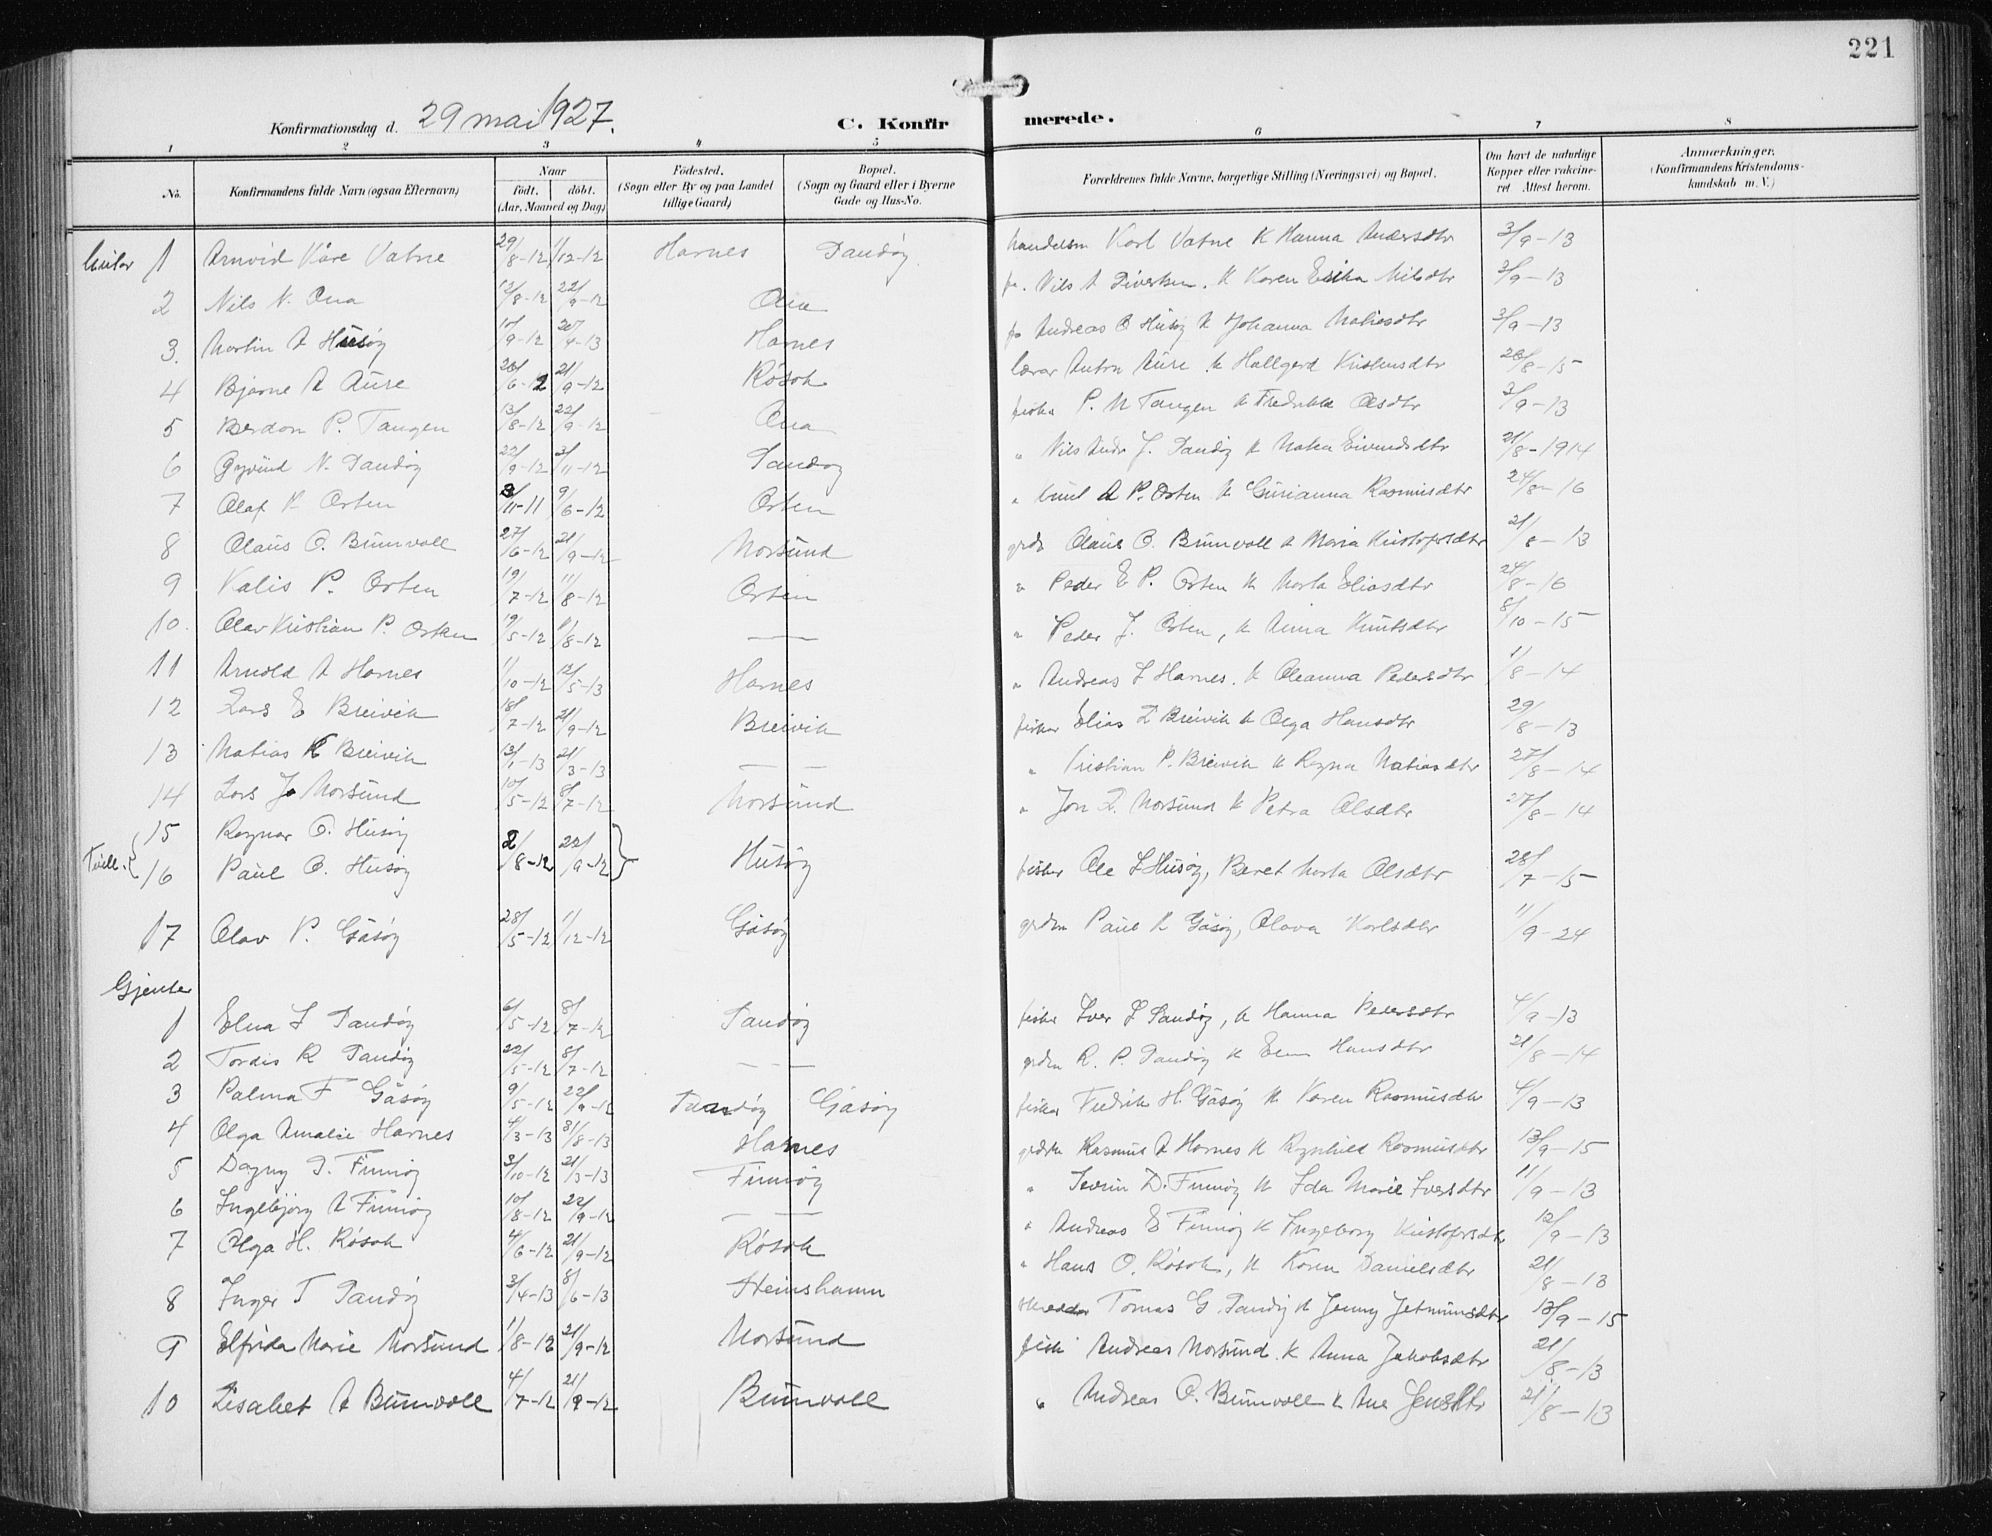 221
Konfirmationsdag d. 29 mai 1927.
C. Konfirmerede.
1 2 3 4 5 6 7 8
No. Konfirmandens fulde Navn (ogsaa Efternavn) Naar født. døbt. (Aar, Maaned og Dag) Fødested. (Sogn eller By og paa Landet tillige Gaard) Bopæl. (Sogn og Gaard eller i Byerne Gade og Hus-No. Forældrenes fulde Navne, borgerlige Stilling (Næringsvei) og Bopæl. Om havt de naturlige Kopper eller vakcineret Attest herom. Anmærkninger. (Konfirmandens Kristendomskundskab m. V.)
1 Arnvid Kåre Vatne 29/8-12 1/12-12 Harnes Sandøy handelsm Karl Vatne K Hanna Andersdtr 3/9-13
2 Nils N. Ona 12/8-12 22/9-12 Ona Nils A Sivertsen. K Karen Erika Nilsdtr 3/9-13
3. Martin A Husøy 10/9-12 20/4-13 Harnes Andreas O Husøy K Johanna Matiasdtr 3/9-13
4 Bjarne A Aure 28/6-12 21/9-12 Røsok lærar Anton Aure K Hallgerd Kristensdtr 28/8-15
5 Berdon P. Tangen 13/8-12 22/9-12 Ona fisker P. N Tangen K Fredrikka Olsdtr 3/9-13
6 Øyvind N. Sandøy 22/9-12 3/11-12 Sandøy " Nils Andr J. Sandøy K Matea Eivindsdtr 21/8-1914
7 Olaf K Orten 3/11-11 9/6-12 Orten " Knut A P. Orten K Gurianna Rasmusdtr 24/8-16
8 Olaus O. Bunvoll 27/6-12 21/9-12 Morsund grdm Olaus O. Bunvoll K Maria Kristofersdtr 21/8-13
9 Valis P. Orten 19/7-12 11/8-12 Orten " Peder E P. Orten K Marta Eliasdtr 24/8-16
10. Olav Kristian P. Orten 19/5-12 11/8-12 — " Peder J. Orten, K Anna Knutsdtr 8/10-15
11 Arnold A Harnes 1/10-12 12/5-13 Harnes " Andreas L Harnes. K Oleanna Pedersdtr 1/8-14
12 Lars E Breivik 18/7-12 21/9-12 Breivik fisker Elias L Breivik K Olga Hansdtr 29/8-13
13 Matias K Breivik 13/1-13 21/3-13 — — " Kristian P. Breivik K Ragna Matiasdtr 27/8-14
14 Lars J Morsund 10/5-12 8/7-12 Morsund " Jon L. Morsund K Petra Olsdtr 27/8-14
15 Ragnar O. Husøy
Tvill. 16 Paul O. Husøy 2/8-12 22/9-12 Husøy fisker Ole L Husøy, Beret Marta Olsdtr 28/7-15
17 Olav P. Gåsøy 28/5-12 1/12-12 Gåsøy grdm Paul K Gåsøy, Olava Karlsdtr 11/9-24
Gjenter
1 Elna I Sandøy 6/5-12 8/7-12 Sandøy fisker Iver L Sandøy, K Hanna Pedersdtr 4/9-13
2 Tordis R Sandøy 22/5-12 8/7-12 — — — grdm R. P. Sandøy K Elen Hansdtr 21/8-14
3 Palma F Gåsøy 9/5-12 22/9-12 Sandøy Gåsøy fisker Fredrik H. Gåsøy K Karen Rasmusdtr 4/9-13
4 Olga Amalie Harnes 4/3-13 31/8-13 Harnes Rasmus A Harnes K Ragnhild Rasmusdtr 13/9-15
5 Dagny S. Finnøy 3/10-12 21/3-13 Finnøy " Severin D. Finnøy K Ida Marie Iversdtr 11/9-13
6 Ingebjørg A Finnøy 10/8-12 22/9-12 — — " Andreas E Finnøy K Ingeborg Kristofersdtr 12/9-13
7 Olga H. Røsok 4/6-12 21/9-12 Røsok " Hans O. Røsok, K Karen Danielsdtr 21/8-13
8 Inger T Sandøy 3/4-13 8/6-13 Steinshamn Tomas G. Sandøy K Jenny Jetmundsdtr 13/9-15
9 Elfrida Marie Morsund 1/8-12 21/9-12 Morsund fisk Andreas Morsund. K Anna Jakobsdtr 21/8-13
10 Lisabet A Bunvoll 4/7-12 21/9-12 Bunvoll " Andreas O. Bunvoll K Ane Jensdtr 21/8-13